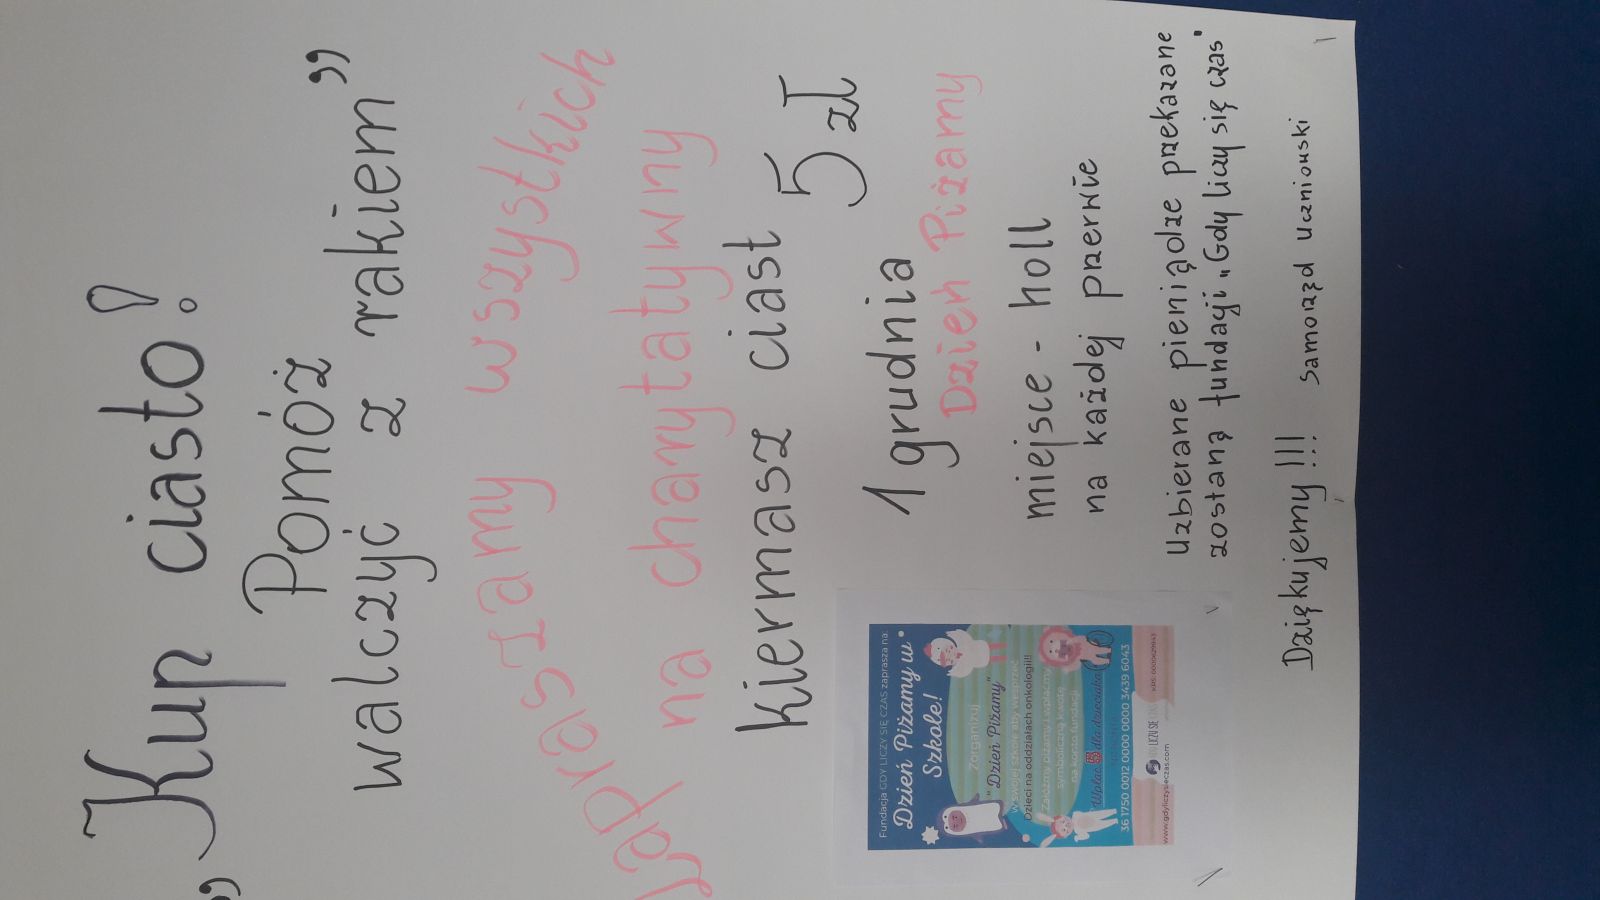 „Kup ciasto!
Pomóż
walczyć z rakiem”
Zapraszamy wszystkich
na charytatywny
kiermasz ciast 5 zł
1 grudnia
Dzień Piżamy
miejsce - holl
na każdej przerwie
Uzbierane pieniądze przekazane
zostaną fundacji „Gdy liczy się czas"
Dziękujemy !!! Samorząd Uczniowski
Fundacja GDY LICZY SIĘ CZAS zaprasza na:
Dzień Piżamy w
Szkole!
Zorganizuj
"Dzień Piżamy"
w swojej szkole aby wesprzeć
Dzieci na oddziałach onkologii!!
Załóżmy piżamy i wpłaćmy
symboliczną kwotę
na konto fundacji
Wpłać dla dzieciaka
36 1750 0012 0000 0000 3439 6043
LICZY SIĘ
www.gdyliczysieczas.com